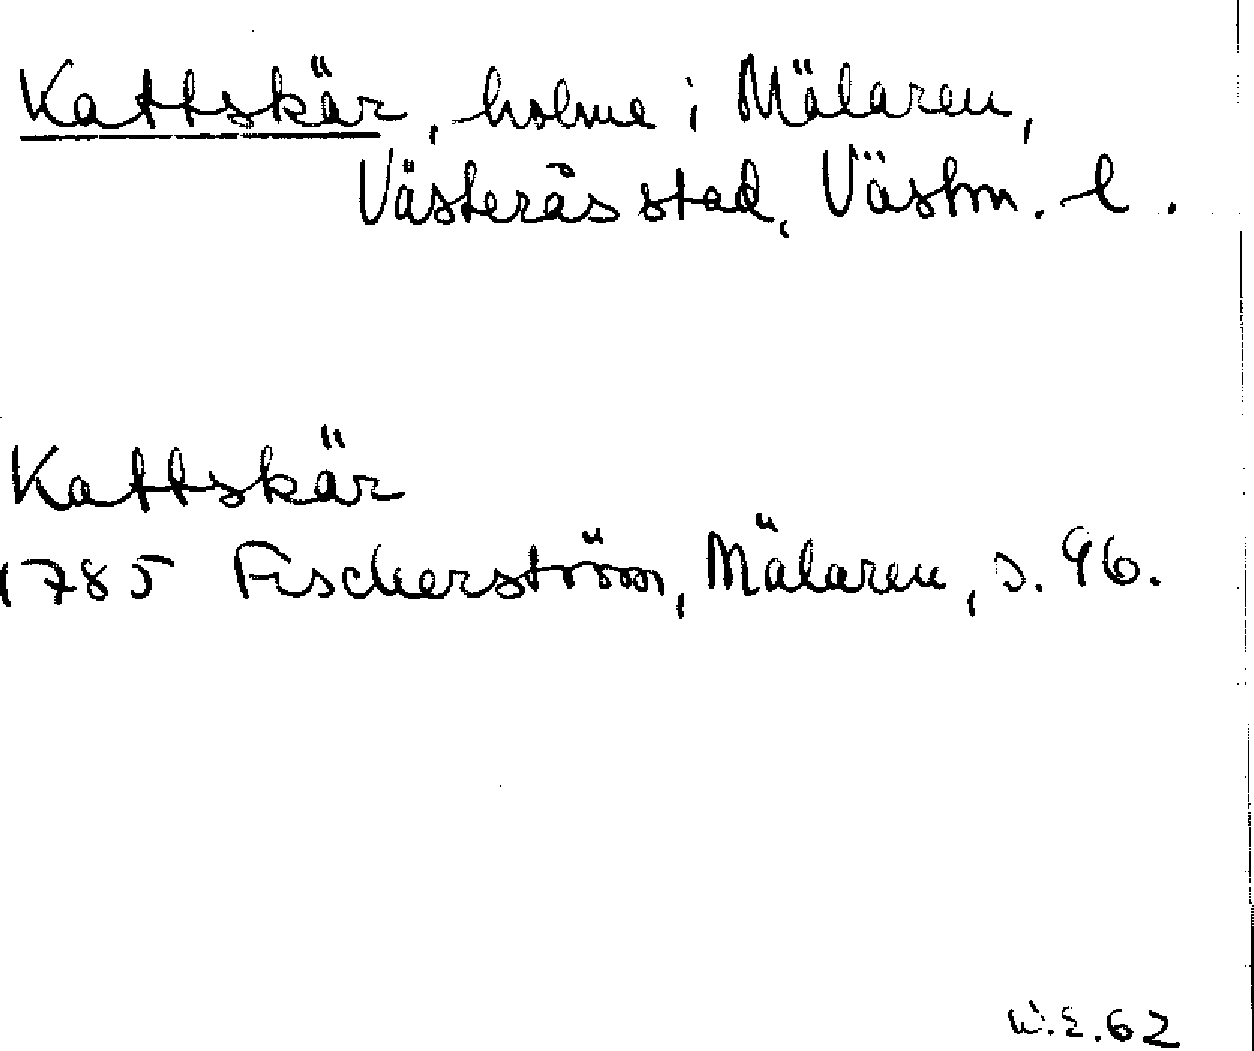 Kattskär, holme i Mälaren,
Västerås stad, Västm. l.
Kattskär
1785 Fischerström, Mälaren, s. 96.
W.E.62